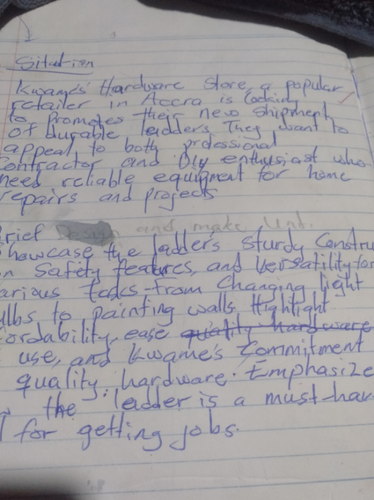 Situation
Kwame's Hardware Store, a popular
retailer in Accra is looking
to promotes their new shipment
of durable ladders. They want to
appeal to both professional
contractor and Diy enthusiast who
need reliable equipment for home
repairs and projects
rief and make
howcase the ladders sturdy Constru
on Safety features, and versatility for
arious tasks-from Changing light
ulbs to painting walls. Highlight
fordability, ease quality hardware
use, and Kwame's Commitment
quality hardware. Emphasize
the ladder is a must-hav
l for getting jobs.